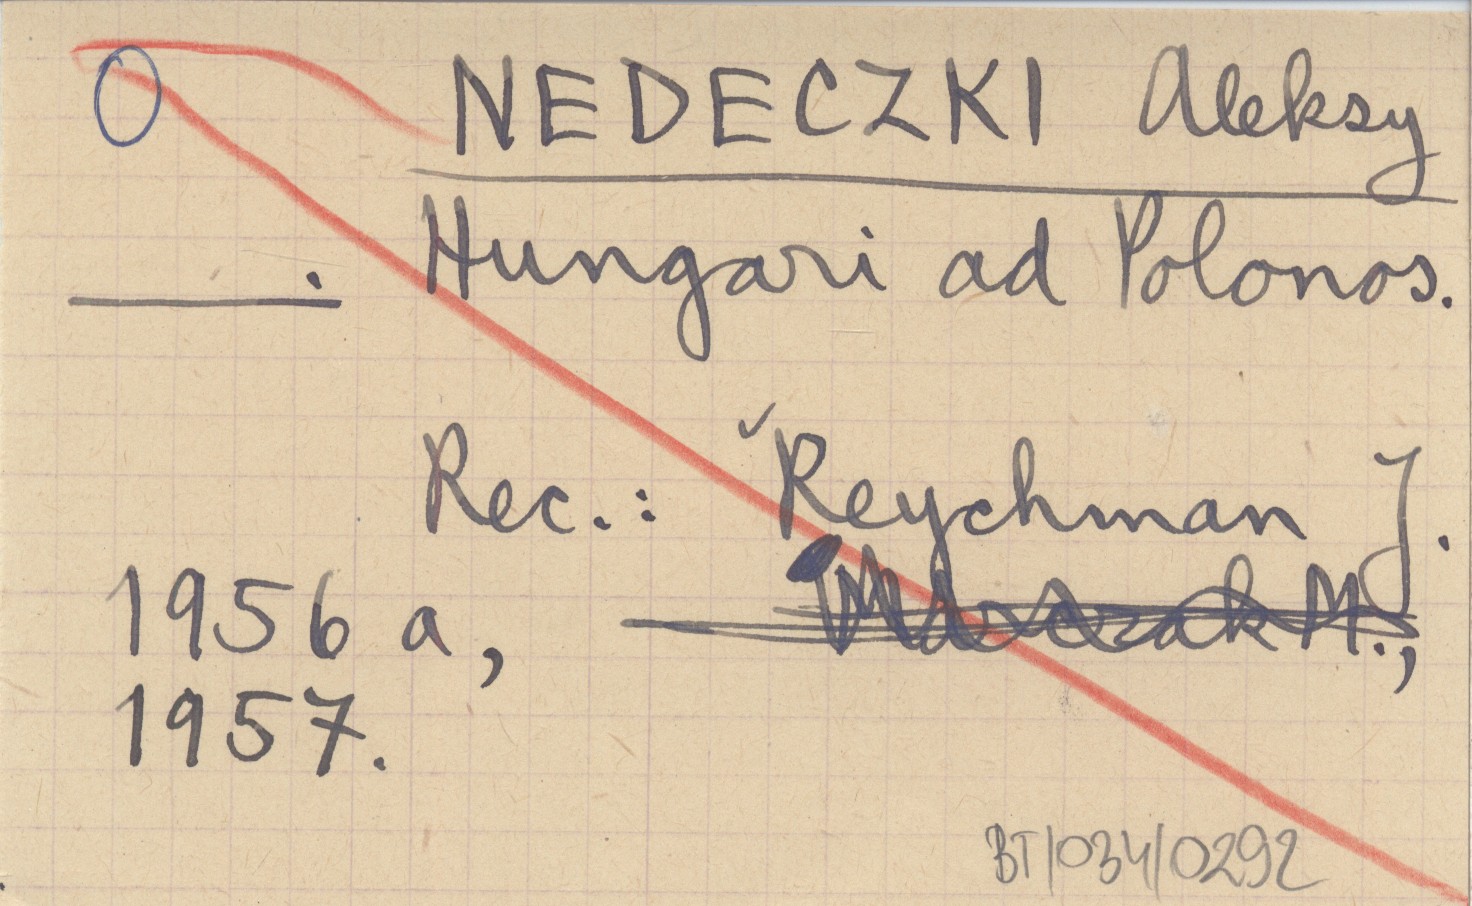 O NEDECZKI Aleksy
Hungari ad Polonos.
Rec.: Reychman J.
1956 a,
1957.
BT/034/0292